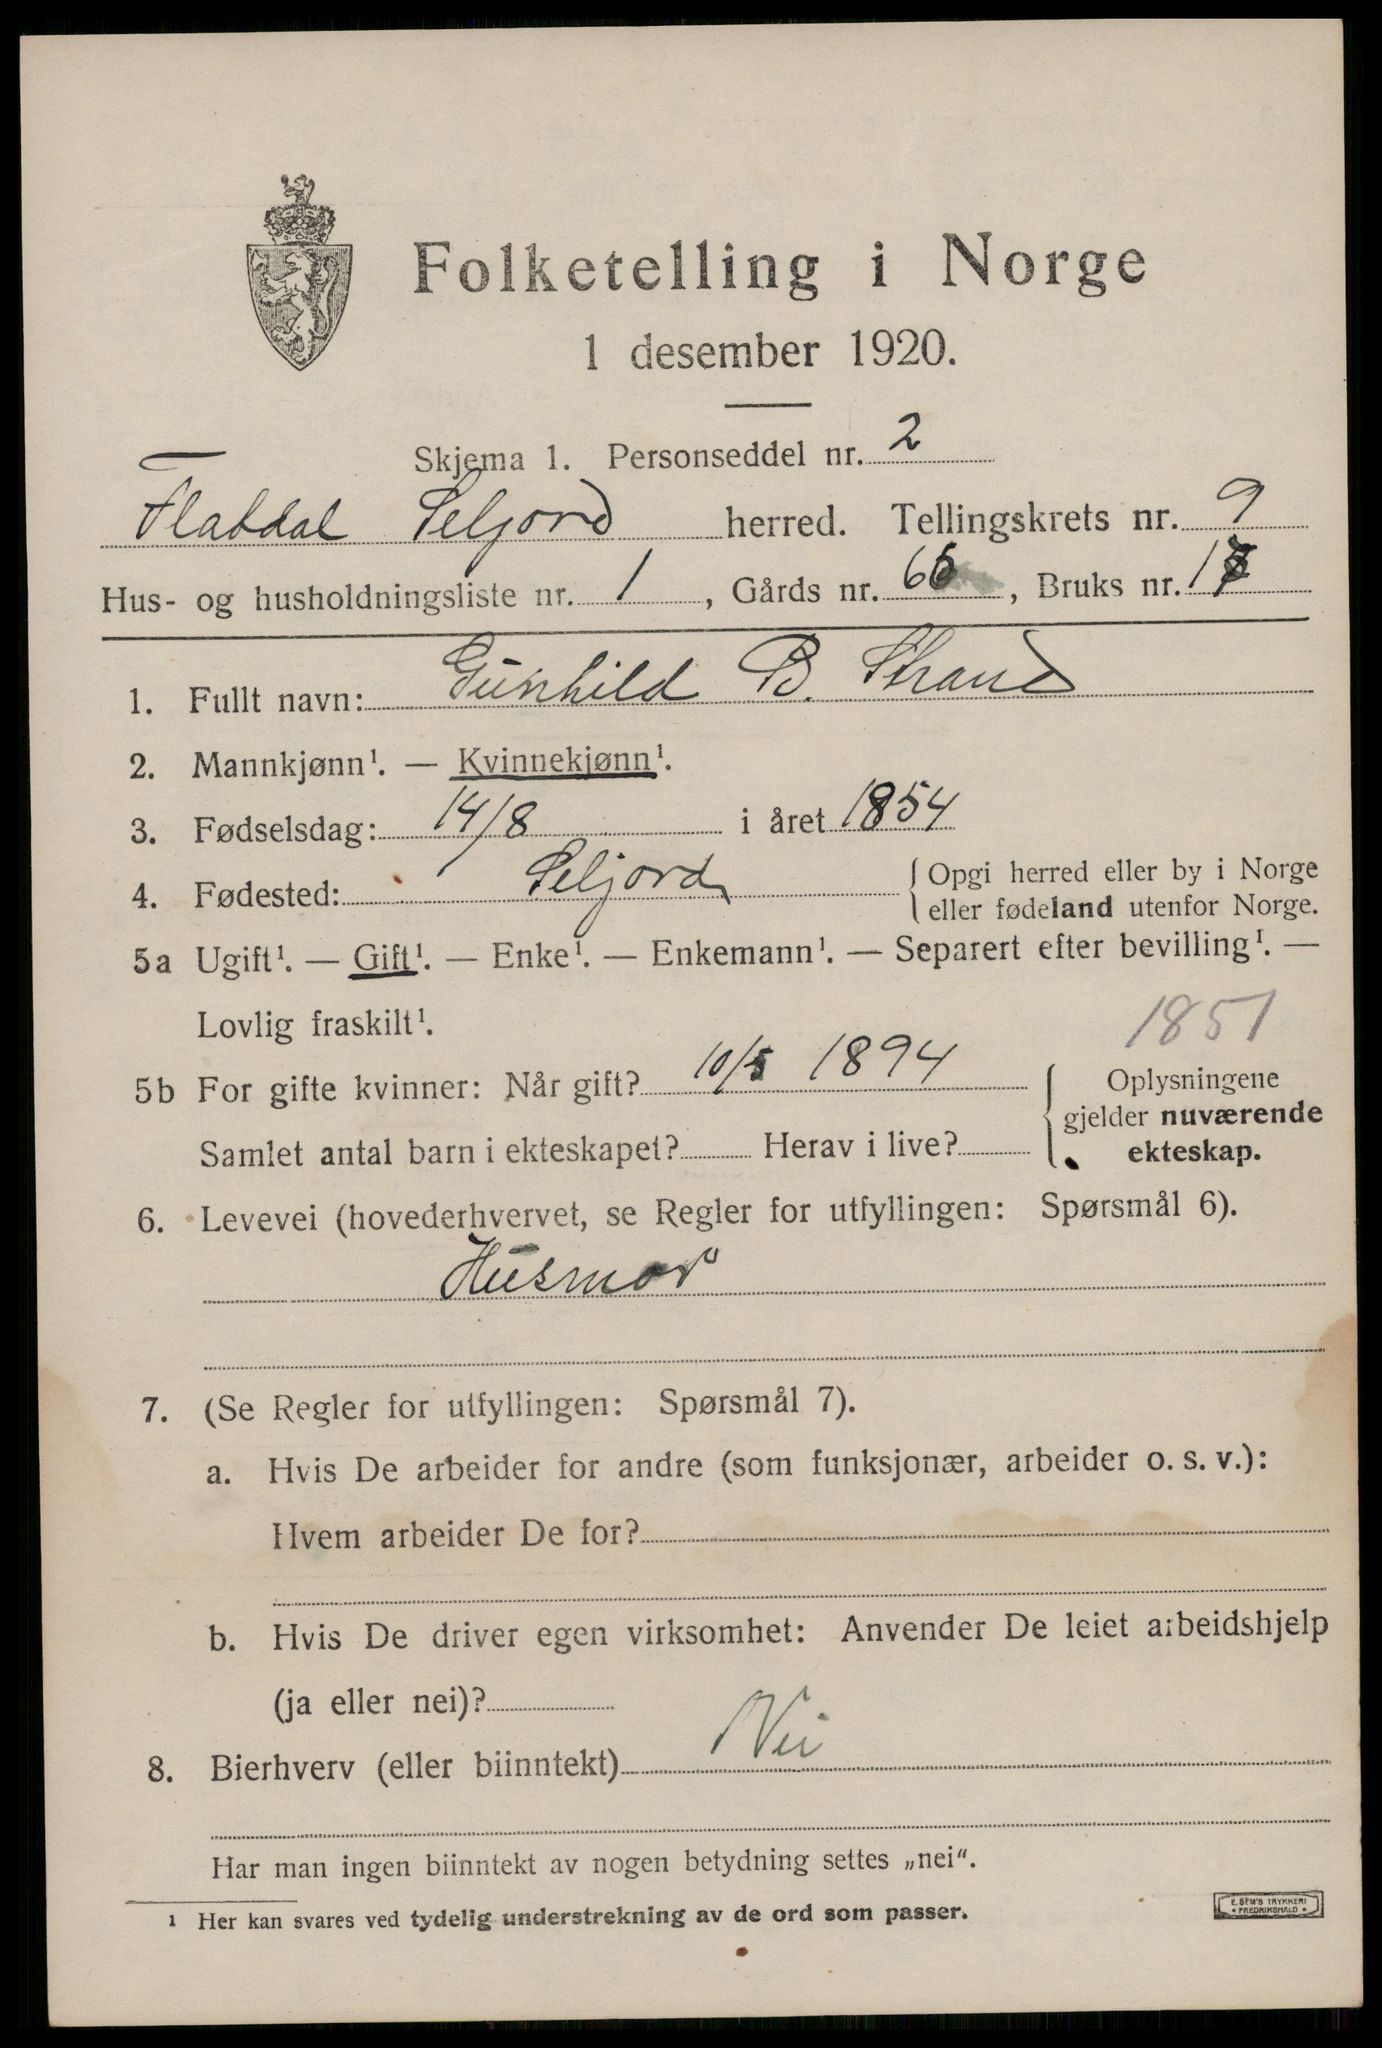 Folketelling i Norge
1 desember 1920.
Skjema 1. Personseddel nr. 2
Flatdal Seljord herred. Tellingskrets nr. 9
Hus- og husholdningsliste nr. 1, Gårds nr. 66, Bruks nr. 1
1. Fullt navn: Gunhild B. Strand
2. Mannkjønn¹. — Kvinnekjønn¹.
3. Fødselsdag: 14/8 i året 1854
4. Fødested: Seljord { Opgi herred eller by i Norge
eller fødeland utenfor Norge.
5a Ugift¹. — Gift¹. — Enke¹. — Enkemann¹. — Separert efter bevilling¹. —
Lovlig fraskilt¹.
1851
5b For gifte kvinner: Når gift? 10/5 1894
Samlet antal barn i ekteskapet? Herav i live?
Oplysningene
gjelder nuværende
ekteskap.
6. Levevei (hovederhvervet, se Regler for utfyllingen: Spørsmål 6).
Husmor
7. (Se Regler for utfyllingen: Spørsmål 7).
a. Hvis De arbeider for andre (som funksjonær, arbeider o. s. v.):
Hvem arbeider De for?
b. Hvis De driver egen virksomhet: Anvender De leiet arbeidshjelp
(ja eller nei)?
8. Bierhverv (eller biinntekt) Nei
Har man ingen biinntekt av nogen betydning settes „nei“.
¹ Her kan svares ved tydelig understrekning av de ord som passer.
E. SEM'S TRYKKERI
* FREDRIKSHALD *